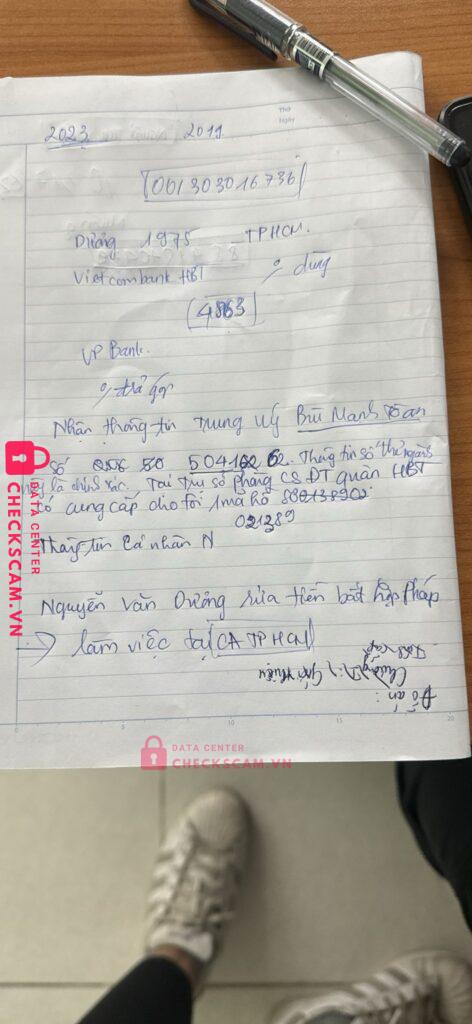 Thứ
Ngày
2023 2019
001303016736
Dương 1975 TPHCM.
Vietcombank HBT % dùng
4863
VP Bank.
% trả góp
Nhận thông tin Trung úy Bùi Mạnh Toàn
Số 50 504162 62. Thông tin số thẻ ngành
này là chính xác. Tại trụ sở phòng CS ĐT quận HBT
có cung cấp cho tôi 1 mã hồ sơ
021389
Thông tin Cá nhân N
Nguyễn Văn Dương rửa tiền bất hợp pháp
→ làm việc tại CA TPHCM
Đồ án :
Chương 1, Giới thiệu
0 10 15 20
DATA CENTER
CHECKSCAM.VN
DATA CENTER
CHECKSCAM.VN